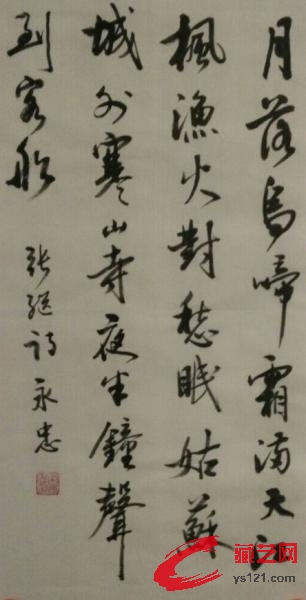 月落烏啼霜满天江
楓漁火對愁眠姑蘇
城外寒山寺夜半鐘聲
到客船
張继詩永忠
藏艺网
ys121.com